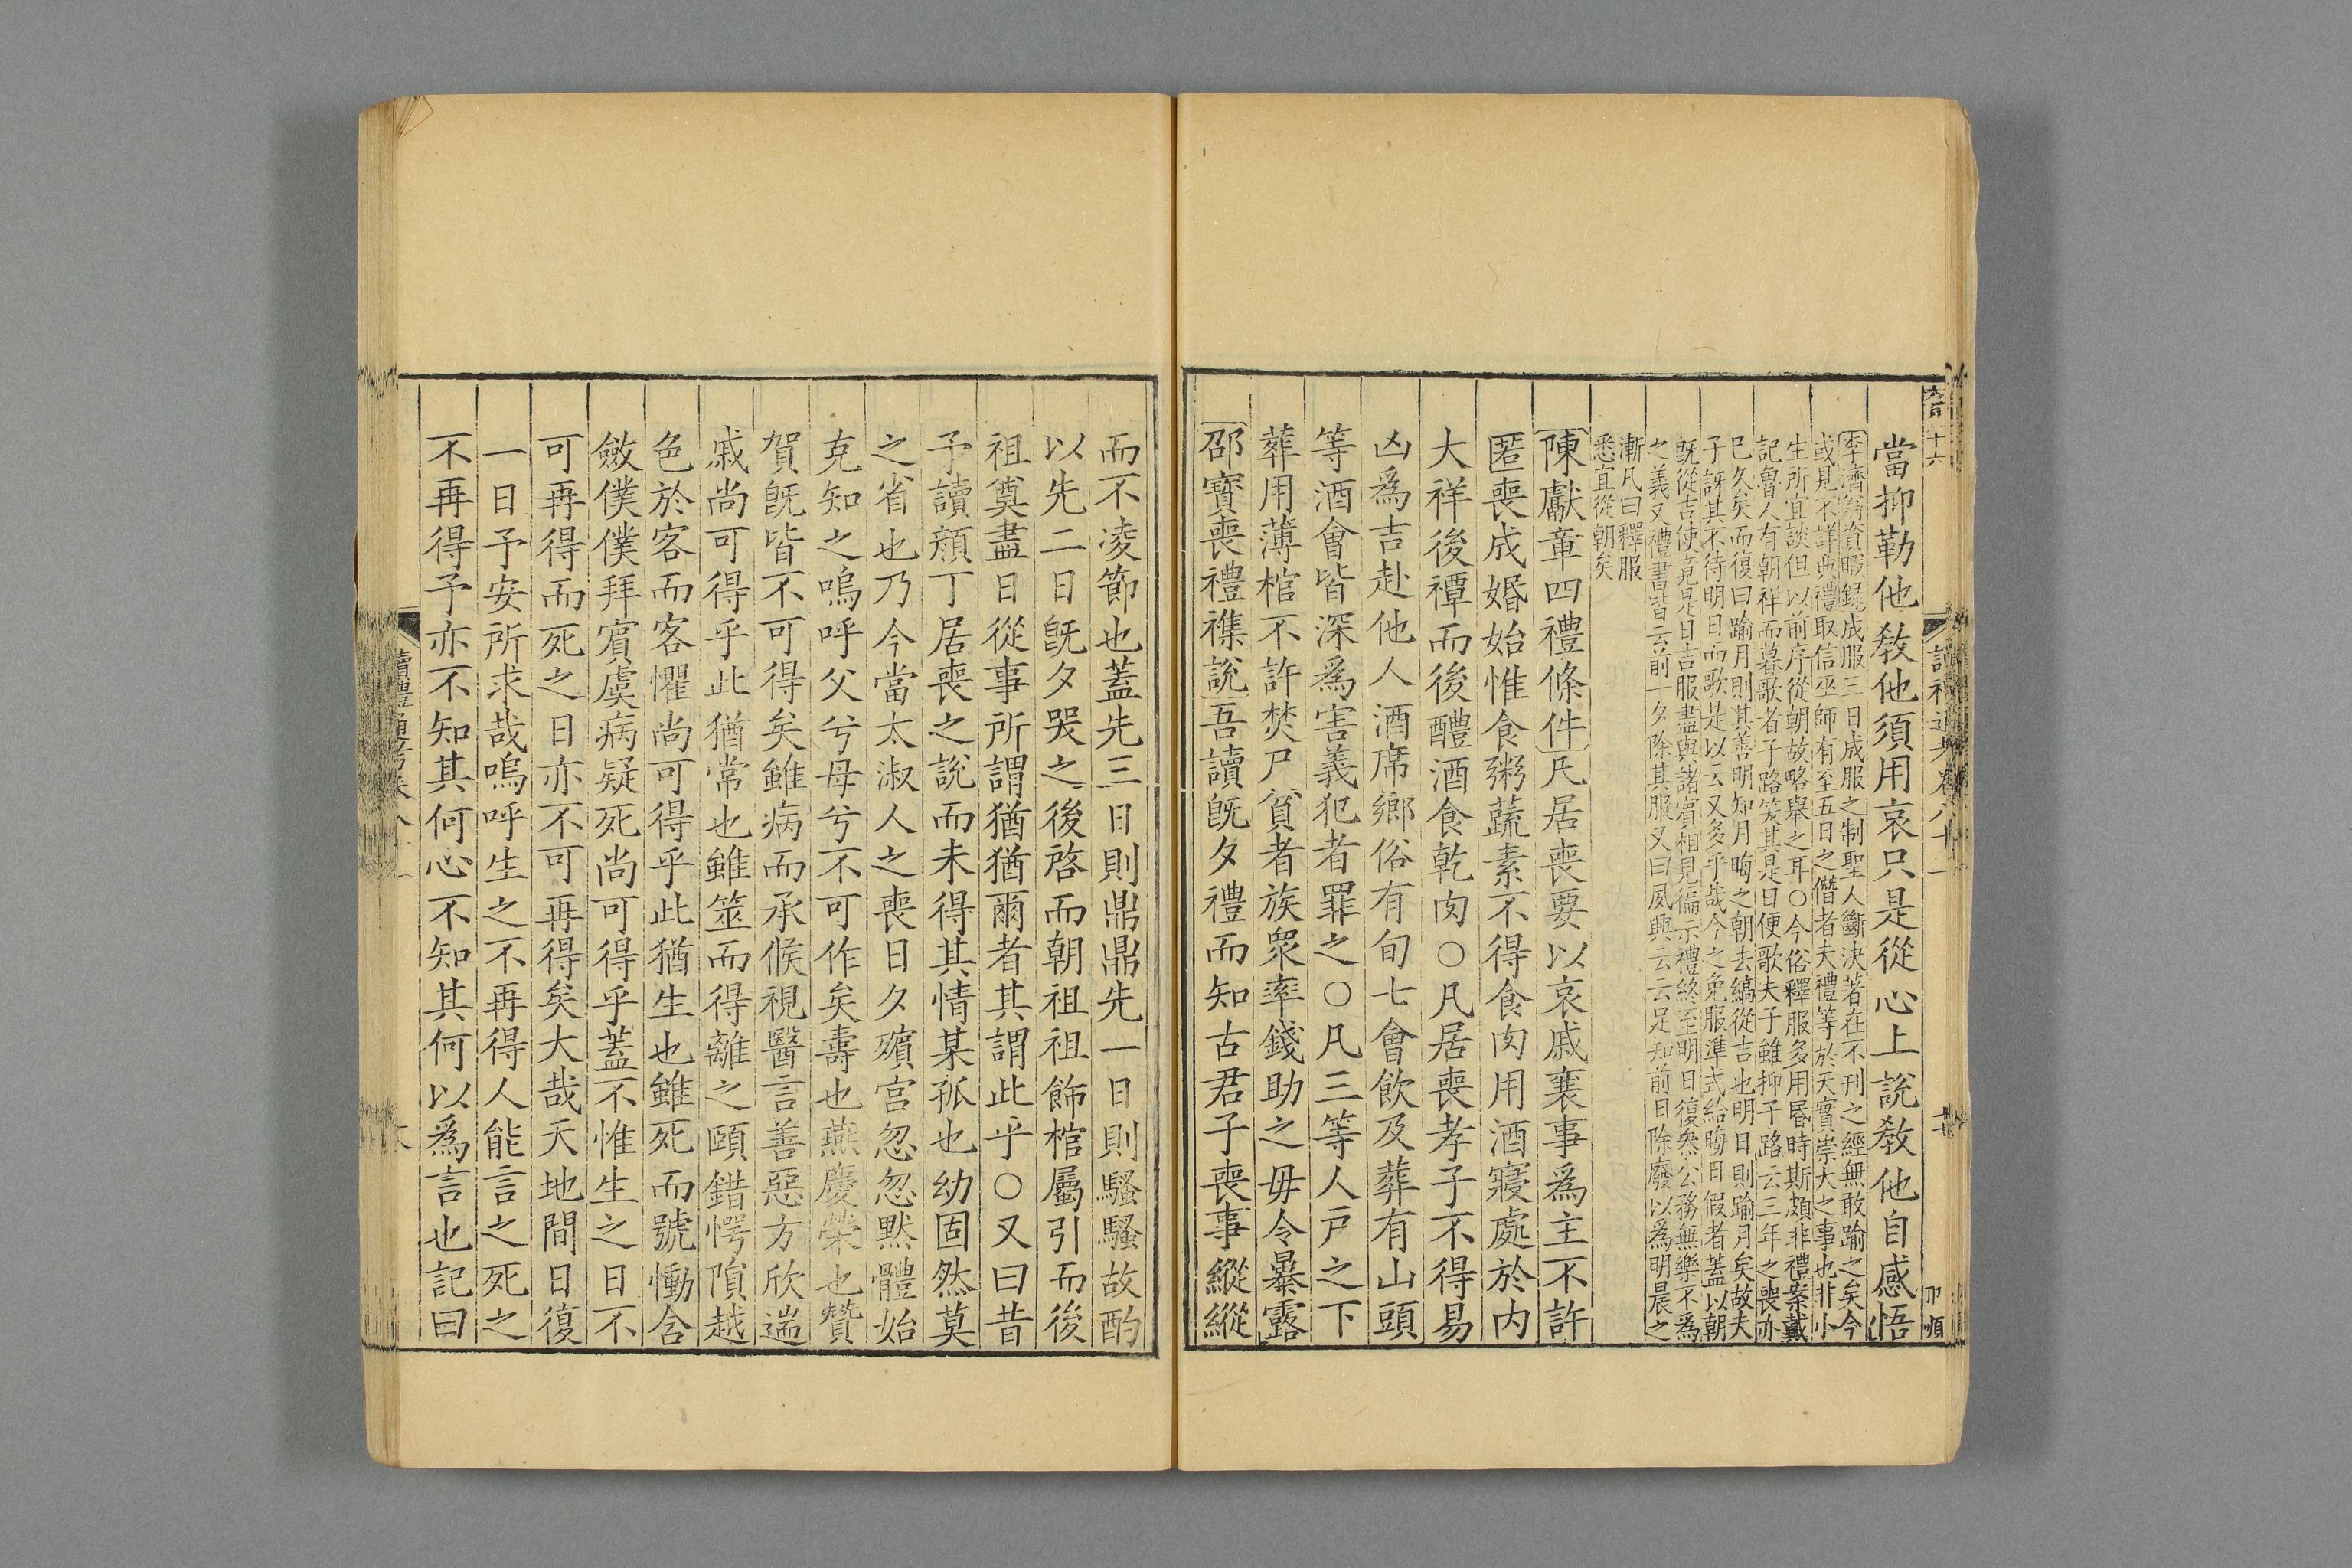 當抑勒他敎他須用哀只是從心上說敎他自感悟
李濟翁資暇錄成服三日成服之制聖人斷決著在不刊之經無敢踰之矣今
或見不詳典禮取信巫師有至五日之僭者夫禮等於天實崇大之事也非小
生所宜談但以前序從朝故略舉之耳○今俗釋服多用昬時斯頗非禮案戴
記魯人有朝祥而暮歌者子路笑其是日便歌夫子雖抑子路云三年之喪亦
巳久矣而復曰踰月則其善明知月晦之朝去縞從吉也明日則踰月矣故夫
子訝其不待明日而歌是以云又多乎哉今之免服準式給晦日假者蓋以朝
旣從吉使竟是日吉服盡與諸賓相見徧示禮終至明日復叅公務無樂不爲
之義又禮書皆云前一夕除其服又曰夙興云云足知前日除廢以爲明晨之
漸凡曰釋服
悉宜從朝矣
陳獻章四禮條件凡居喪要以哀戚襄事爲主不許
匿喪成婚始惟食粥蔬素不得食肉用酒寢處於内
大祥後禫而後醴酒食乾肉○凡居喪孝子不得易
凶爲吉赴他人酒席鄉俗有旬七會飮及葬有山頭
等酒會皆深爲害義犯者罪之○凡三等人戸之下
葬用薄棺不許焚尸貧者族衆率錢助之毋令暴露
邵寶喪禮襍說吾讀旣夕禮而知古君子喪事縱縱
而不凌節也蓋先三日則鼎鼎先一日則騷騷故酌
以先二日旣夕哭之後啓而朝祖祖飾棺屬引而後
祖奠盡日從事所謂猶猶爾者其謂此乎○又曰昔
予讀顔丁居喪之說而未得其情某孤也幼固然莫
之省也乃今當太淑人之喪日夕殯宮忽忽黙體始
克知之嗚呼父兮母兮不可作矣壽也燕慶榮也贊
賀旣皆不可得矣雖病而承候視醫言善惡方欣遄
戚尚可得乎此猶常也雖筮而得離之頤錯愕隕越
色於客而客懼尚可得乎此猶生也雖死而號慟含
斂僕僕拜賓虞病疑死尚可得乎蓋不惟生之日不
可再得而死之日亦不可再得矣大哉天地間日復
一日予安所求哉嗚呼生之不再得人能言之死之
不再得予亦不知其何心不知其何以爲言也記曰